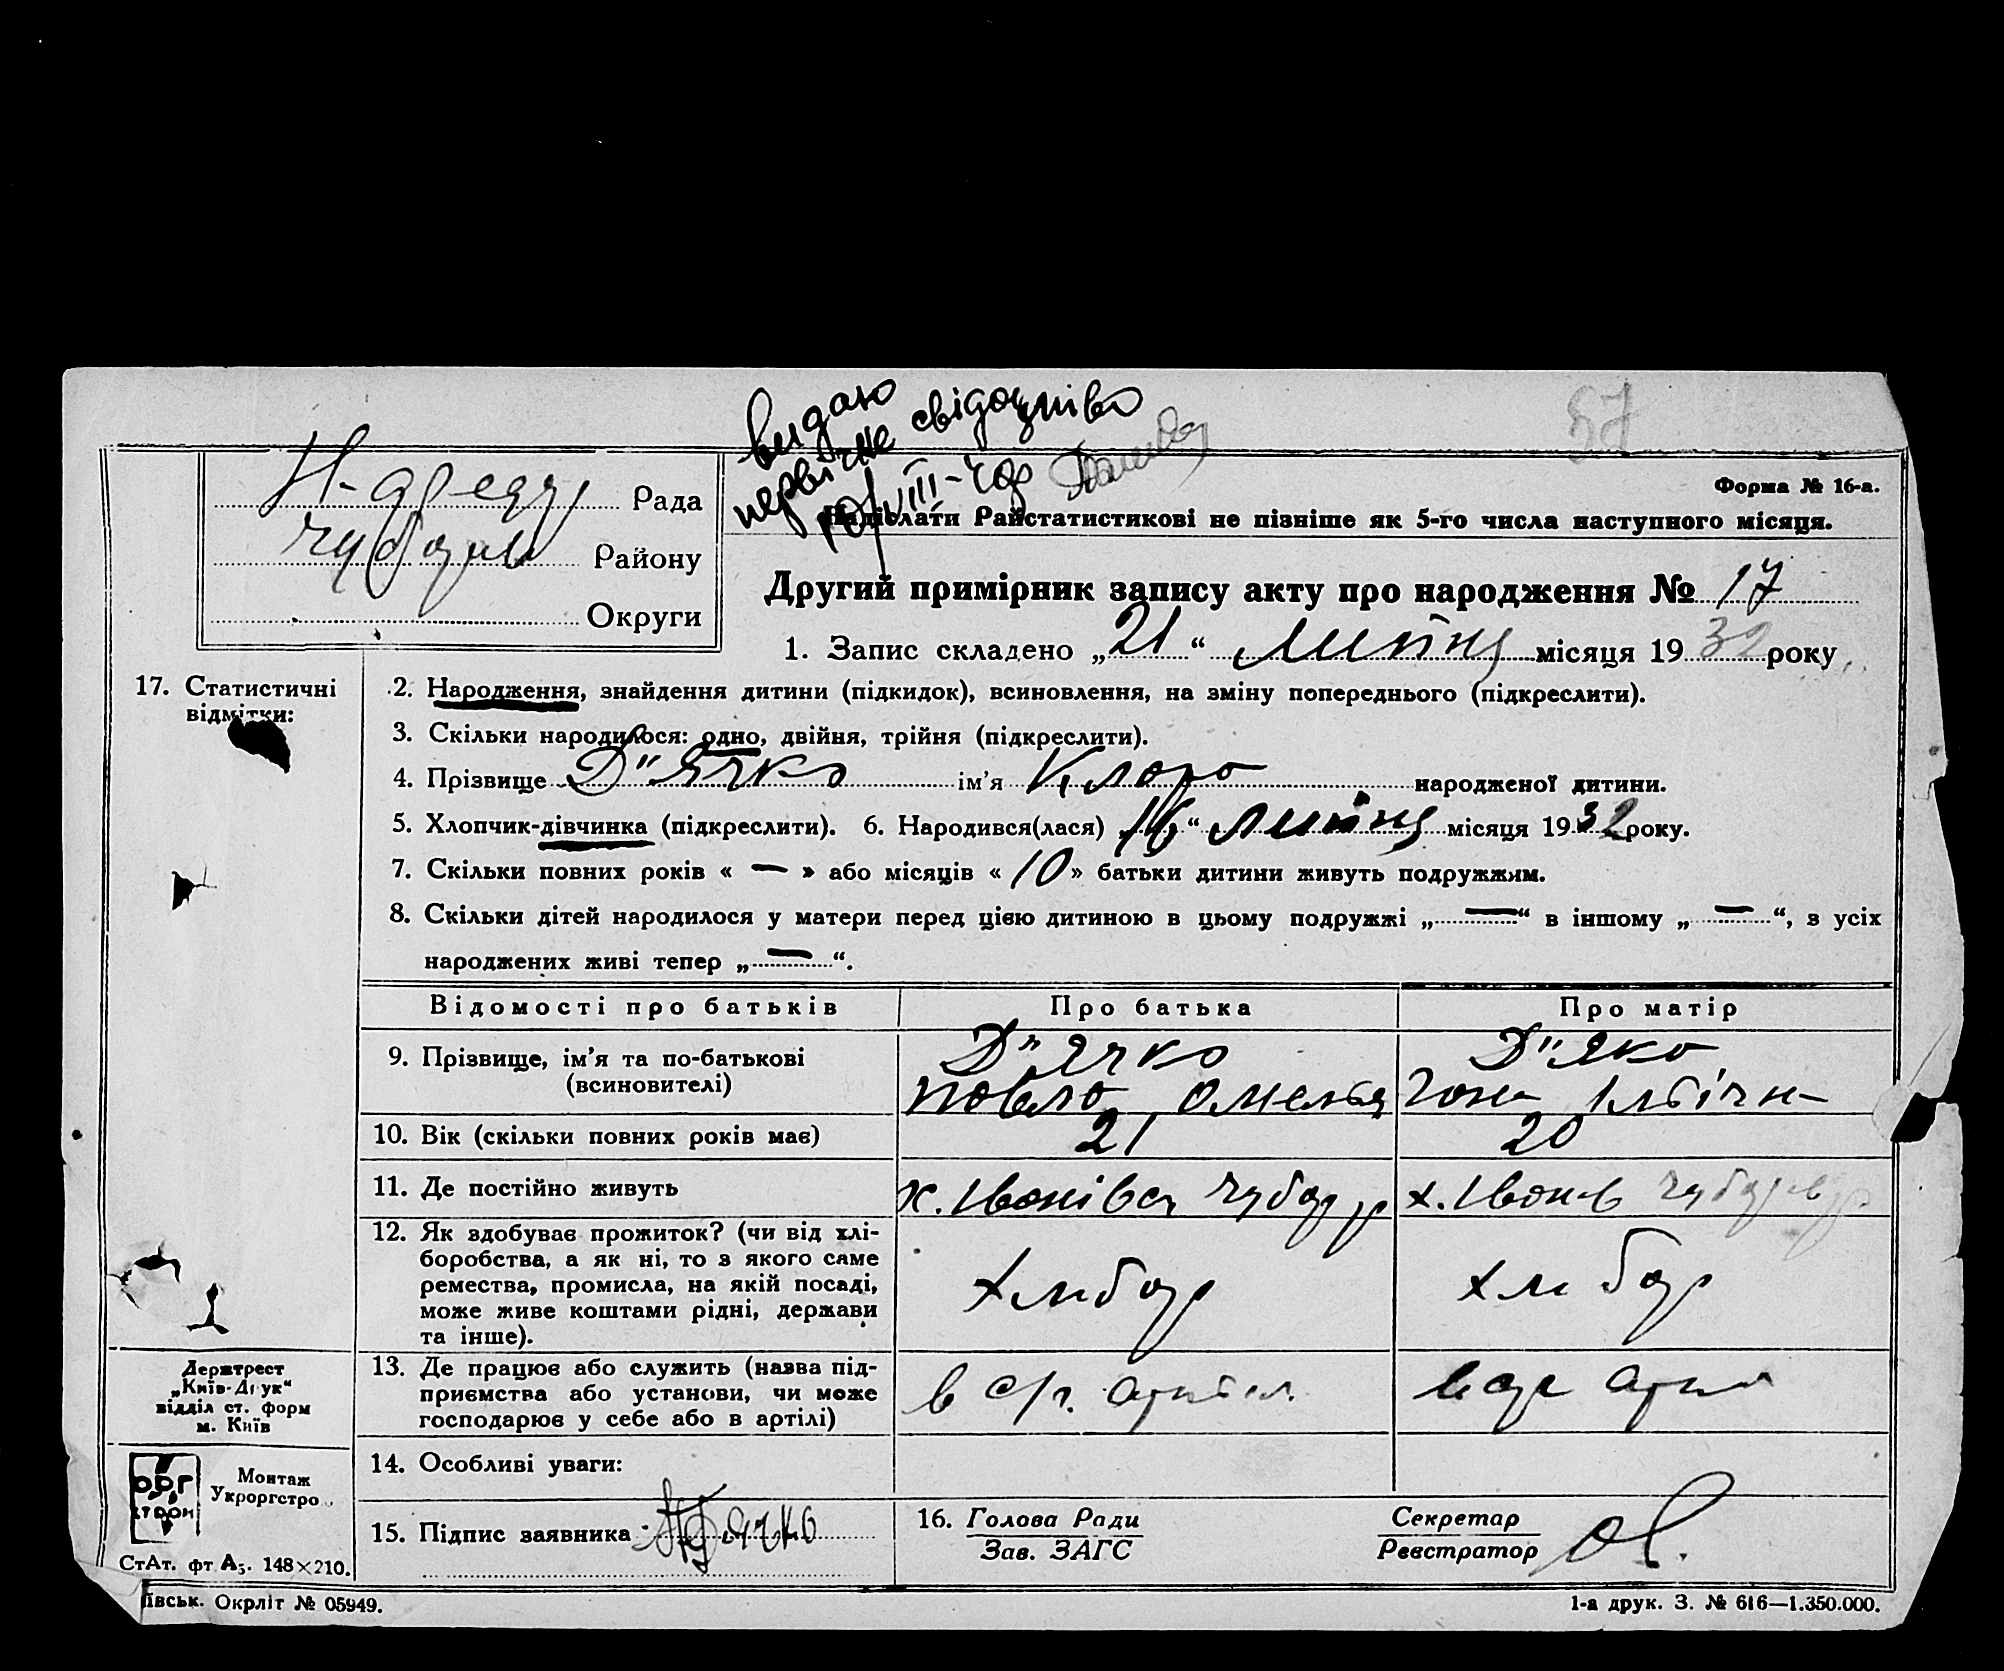 видаю
первічне свідоцтво
VIII-
57
Рада
Району
Округи
Форма № 16-а.
Надіслати Райстатистикові не пізніше як 5-го числа наступного місяця.
Другий примірник запису акту про народження № 17
1. Запис складено „21“ липня місяця 1932 року
17. Статистичні
відмітки:
2. Народження, знайдення дитини (підкидок), всиновлення, на зміну попереднього (підкреслити).
3. Скільки народилося: одно, двійня, трійня (підкреслити).
4. Прізвище Д"ячко ім’я Клара народженої дитини.
5. Хлопчик-дівчинка (підкреслити). 6. Народився(лася) „16“ липня місяця 1932 року.
7. Скільки повних років « — » або місяців « 10 » батьки дитини живуть подружжям.
8. Скільки дітей народилося у матери перед цією дитиною в цьому подружжі „—“ в іншому „—“, з усіх
народжених живі тепер „—“.
Відомості про батьків Про батька Про матір
9. Прізвище, ім’я та по-батькові
(всиновителі)
Д"ячко
Павло Омеля
Д"яко
10. Вік (скільки повних років має) 21 20
11. Де постійно живуть х. Іванівка х. Іванів
12. Як здобуває прожиток? (чи від хлі-
боробства, а як ні, то з якого саме
ремества, промисла, на якій посаді,
може живе коштами рідні, держави
та інше).
хлибор хлибор
13. Де працює або служить (назва під-
приємства або установи, чи може
господарює у себе або в артілі)
в с/г.
14. Особливі уваги:
15. Підпис заявника Дячко
16. Голова Ради
Зав. ЗАГС
Секретар
Реєстратор
Держтрест
„Київ-Друк“
відділ ст. форм
м. Київ
ОРГ
СТРОМ
Монтаж
Укроргстро
СтАт. фт А₅. 148×210.
ївськ. Окрліт № 05949.
1-а друк. З. № 616—1.350.000.